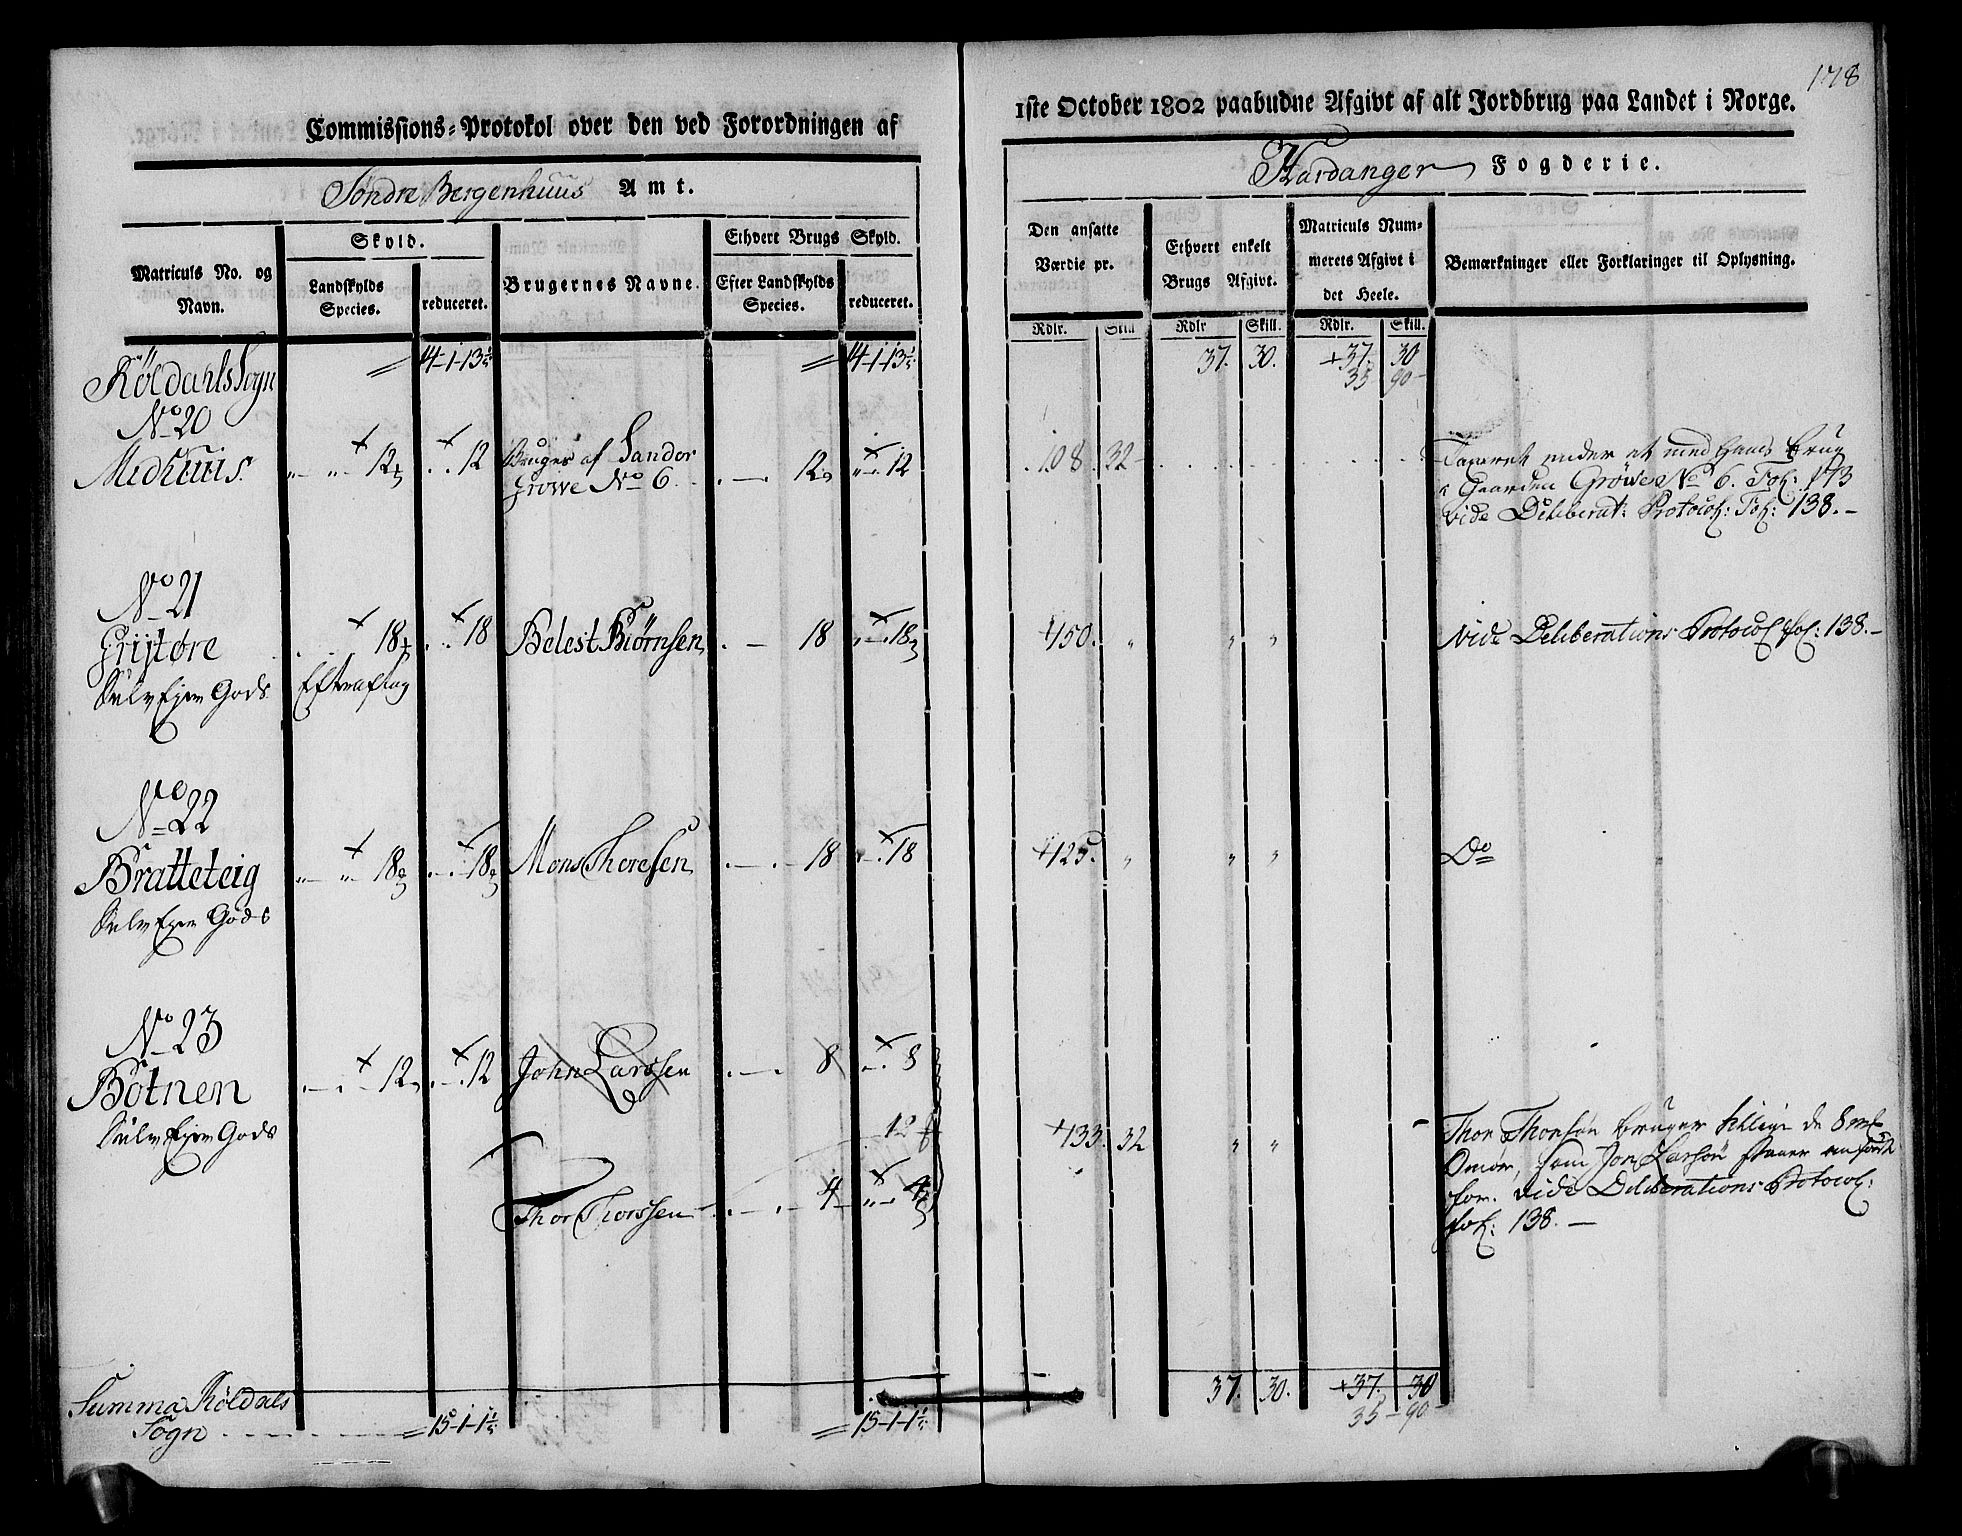 178
Commissions-Protokol over den ved Forordningen af
1ste October 1802 paabudne Afgivt af alt Jordbrug paa Landet i Norge.
Søndre Bergenhuus Amt.
Hardanger Fogderie.
Matriculs No. og Navn.
Skyld.
Landskylds Species.
reduceret.
Brugernes Navne.
Ethvert Brugs Skyld.
Efter Landskylds Species.
reduceret.
Den ansatte Værdie pr.
Ethvert enkelt Brugs Afgivt.
Matriculs Nummerets Afgivt i det Heele.
Bemærkninger eller Forklaringer til Oplysning.
Rdlr. Skill. Rdlr Skill. Rdlr. Skill.
Røldahls Sogn = 14-1-13½ = 14-1-13½ 37. 30. +37. 30
35 90-
No 20
Midhuus. 12 12 Bruges af Sandor 12 12 108. 32 Taxeret under et med hans Brug
Growe No 6. i Gaarden Grøwe No 6. Fol: 173
vide Deliberat: Protocol: Fol: 138.-
No 21
Grijtøre 18 18 Belest Biørnsen 18 18 150. " " " Vide Deliberations Protocol fol: 138.-
Selv Ejer Gods Efter aflag
No 22
Bratteteig 18 18 Mons Thoresen 18 18 125. " " " Do
Selv Ejer Gods
No 23
Botnen 12 12 John Larssen 8 8
Selv Ejer Gods 12 133. 32 " " Thor Thorsen bruger tillige de 8 mk
Smør, som Jon Larsen staaer anført
Thor Thorssen 4 4 for. vide Deliberations Protocol:
fol: 138.-
37. 30. +37. 30
35-90-
Summa Røldals
Sogn = 15-1-1½ = 15-1-1½